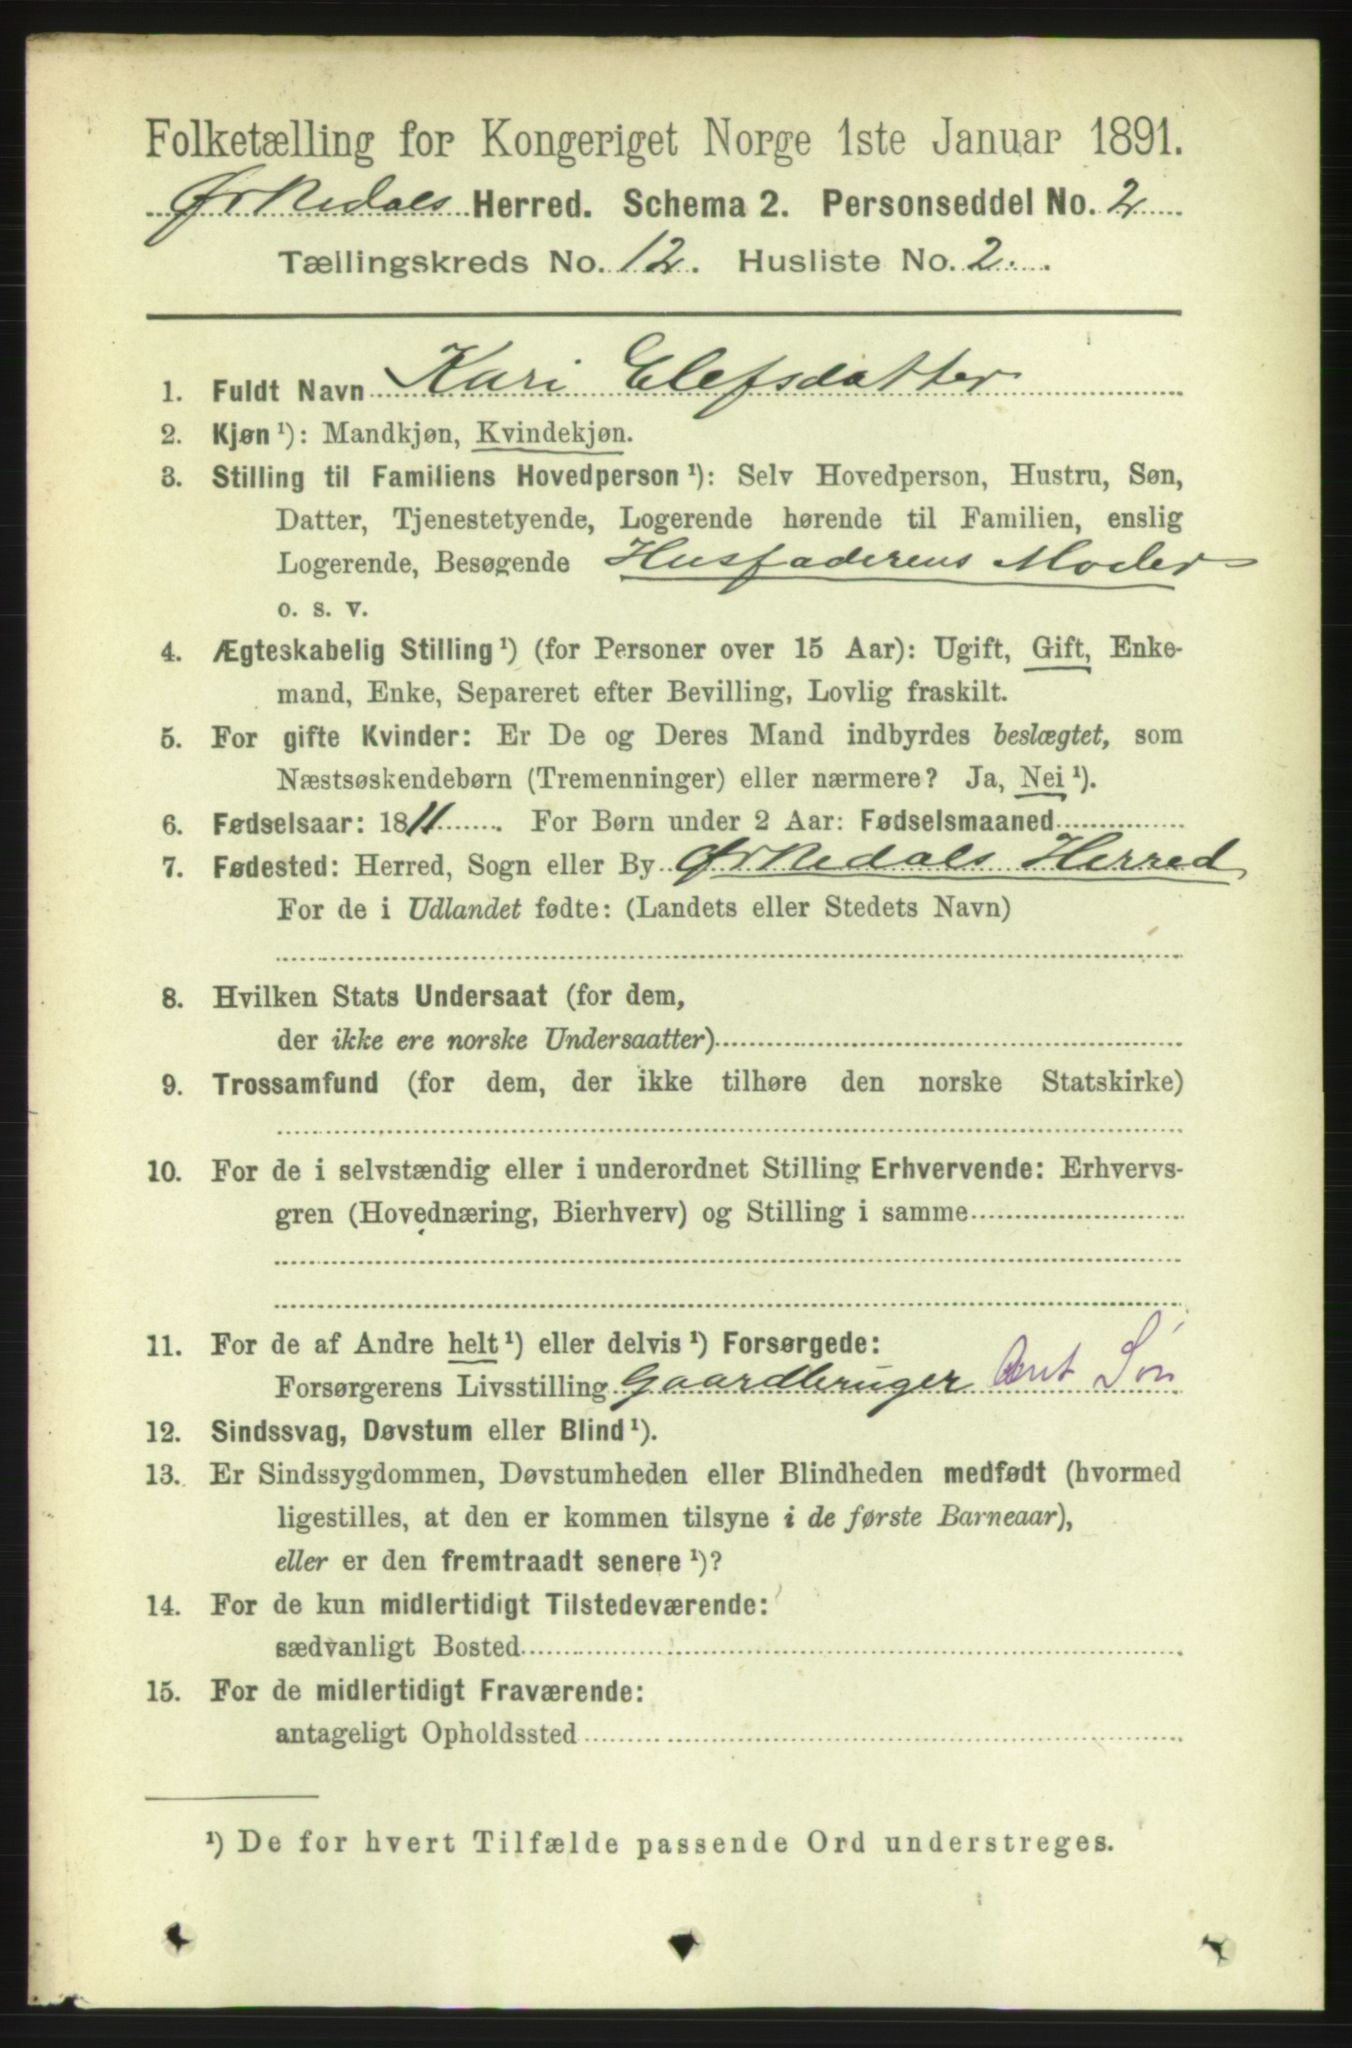 Folketælling for Kongeriget Norge 1ste Januar 1891.
Ørkedals Herred. Schema 2. Personseddel No. 2
Tællingskreds No. 12. Husliste No. 2.
1. Fuldt Navn Kari Elefsdatter
2. Kjøn ¹): Mandkjøn, Kvindekjøn.
3. Stilling til Familiens Hovedperson ¹): Selv Hovedperson, Hustru, Søn,
Datter, Tjenestetyende, Logerende hørende til Familien, enslig
Logerende, Besøgende Husfaderens Moder
o. s. v.
4. Ægteskabelig Stilling ¹) (for Personer over 15 Aar): Ugift, Gift, Enke-
mand, Enke, Separeret efter Bevilling, Lovlig fraskilt.
5. For gifte Kvinder: Er De og Deres Mand indbyrdes beslægtet, som
Næstsøskendebørn (Tremenninger) eller nærmere? Ja, Nei ¹).
6. Fødselsaar: 1811. For Børn under 2 Aar: Fødselsmaaned
7. Fødested: Herred, Sogn eller By Ørkedals Herred
For de i Udlandet fødte: (Landets eller Stedets Navn)
8. Hvilken Stats Undersaat (for dem,
der ikke ere norske Undersaatter)
9. Trossamfund (for dem, der ikke tilhøre den norske Statskirke)
10. For de i selvstændig eller i underordnet Stilling Erhvervende: Erhvervs-
gren (Hovednæring, Bierhverv) og Stilling i samme
11. For de af Andre helt ¹) eller delvis ¹) Forsørgede:
Forsørgerens Livsstilling Gaardbruger Søn
12. Sindssvag, Døvstum eller Blind ¹).
13. Er Sindssygdommen, Døvstumheden eller Blindheden medfødt (hvormed
ligestilles, at den er kommen tilsyne i de første Barneaar),
eller er den fremtraadt senere ¹)?
14. For de kun midlertidigt Tilstedeværende:
sædvanligt Bosted
15. For de midlertidigt Fraværende:
antageligt Opholdssted
¹) De for hvert Tilfælde passende Ord understreges.